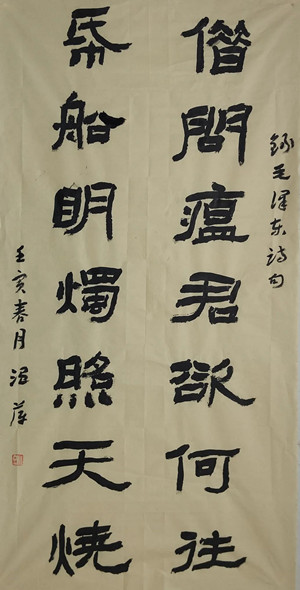 錄毛澤東詩句
借問瘟君欲何往
帋船明燭照天燒
壬寅春月